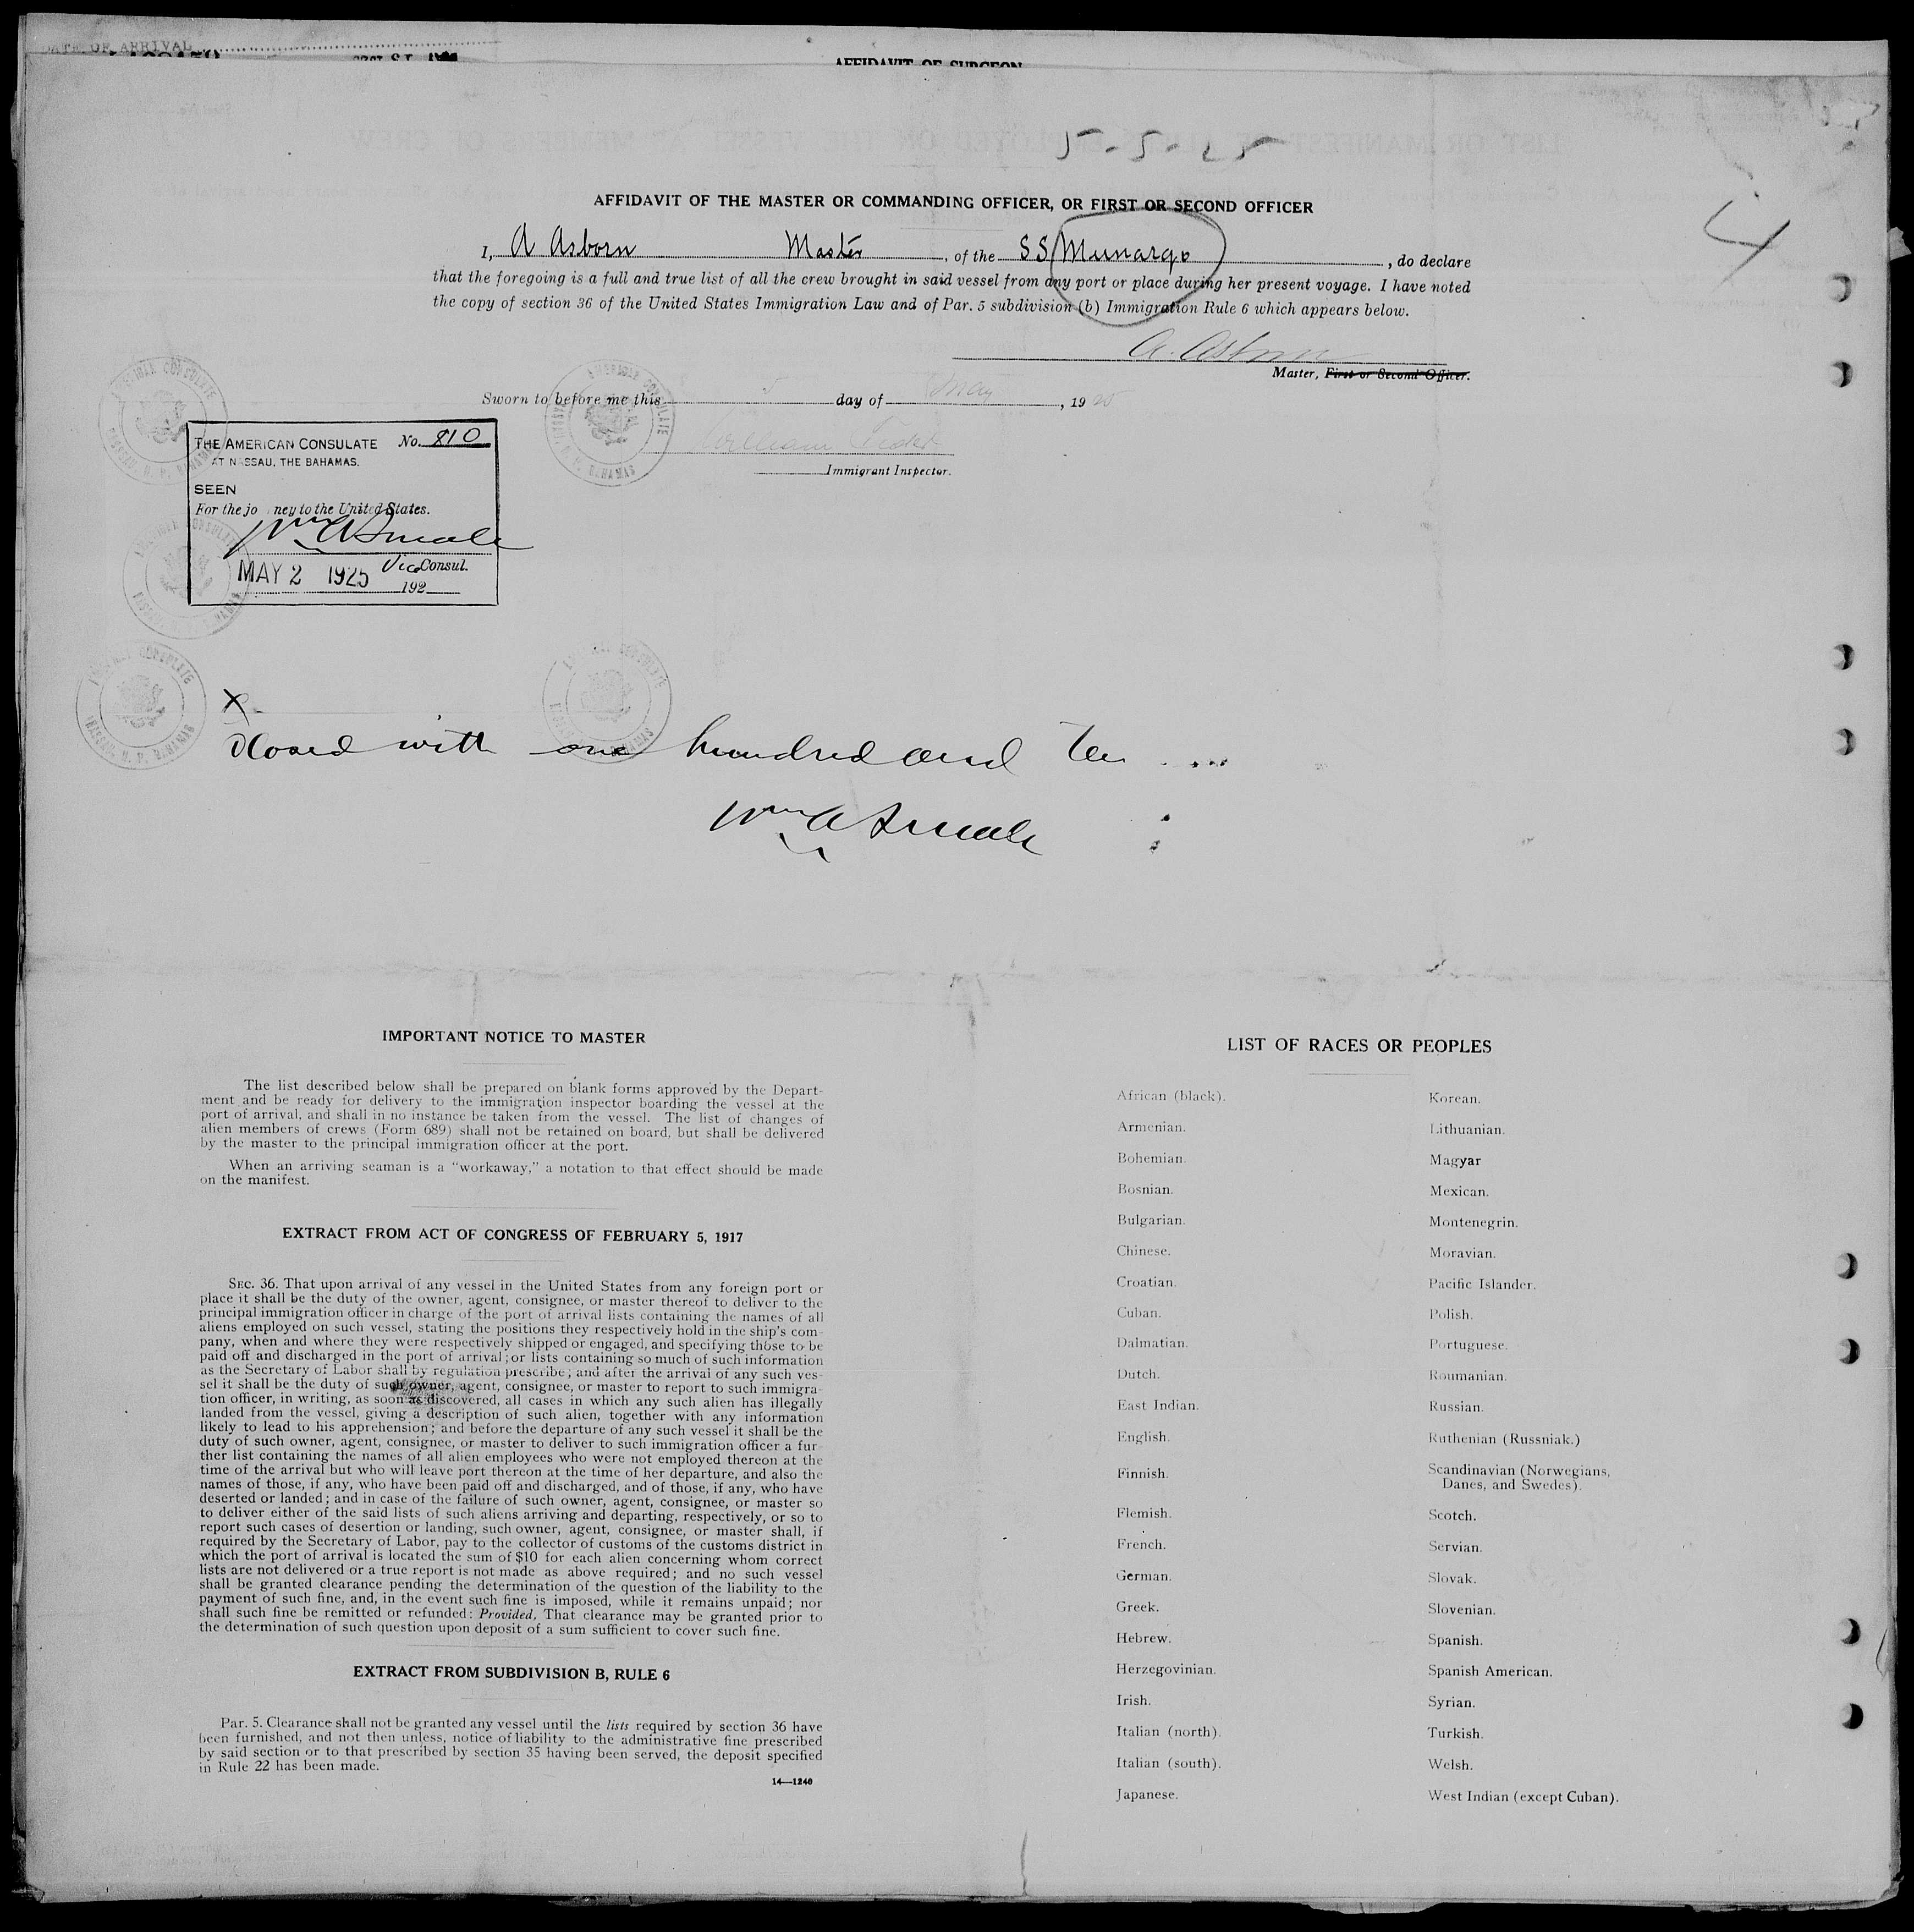 DATE OF ARRIVAL
AFFIDAVIT OF SURGEON
5-5-25
4
AFFIDAVIT OF THE MASTER OR COMMANDING OFFICER, OR FIRST OR SECOND OFFICER
I, A Asborn Master, of the SS Munargo, do declare
that the foregoing is a full and true list of all the crew brought in said vessel from any port or place during her present voyage. I have noted
the copy of section 36 of the United States Immigration Law and of Par. 5 subdivision (b) Immigration Rule 6 which appears below.
A. Asborn
Master, First or Second Officer.
Sworn to before me this 5 day of May, 1925
William
Immigrant Inspector.
AMERICAN CONSULATE
NASSAU, N. P. BAHAMAS
THE AMERICAN CONSULATE No. 810
AT NASSAU, THE BAHAMAS.
SEEN
For the jo ney to the United States.
Wm A Smale
Vice Consul.
MAY 2 1925 192
X
Closed with one hundred and ten
Wm A Smale
IMPORTANT NOTICE TO MASTER
The list described below shall be prepared on blank forms approved by the Depart-
ment and be ready for delivery to the immigration inspector boarding the vessel at the
port of arrival, and shall in no instance be taken from the vessel. The list of changes of
alien members of crews (Form 689) shall not be retained on board, but shall be delivered
by the master to the principal immigration officer at the port.
When an arriving seaman is a "workaway," a notation to that effect should be made
on the manifest.
EXTRACT FROM ACT OF CONGRESS OF FEBRUARY 5, 1917
SEC. 36. That upon arrival of any vessel in the United States from any foreign port or
place it shall be the duty of the owner, agent, consignee, or master thereof to deliver to the
principal immigration officer in charge of the port of arrival lists containing the names of all
aliens employed on such vessel, stating the positions they respectively hold in the ship's com-
pany, when and where they were respectively shipped or engaged, and specifying those to be
paid off and discharged in the port of arrival; or lists containing so much of such information
as the Secretary of Labor shall by regulation prescribe; and after the arrival of any such ves-
sel it shall be the duty of such owner, agent, consignee, or master to report to such immigra-
tion officer, in writing, as soon as discovered, all cases in which any such alien has illegally
landed from the vessel, giving a description of such alien, together with any information
likely to lead to his apprehension; and before the departure of any such vessel it shall be the
duty of such owner, agent, consignee, or master to deliver to such immigration officer a fur-
ther list containing the names of all alien employees who were not employed thereon at the
time of the arrival but who will leave port thereon at the time of her departure, and also the
names of those, if any, who have been paid off and discharged, and of those, if any, who have
deserted or landed; and in case of the failure of such owner, agent, consignee, or master so
to deliver either of the said lists of such aliens arriving and departing, respectively, or so to
report such cases of desertion or landing, such owner, agent, consignee, or master shall, if
required by the Secretary of Labor, pay to the collector of customs of the customs district in
which the port of arrival is located the sum of $10 for each alien concerning whom correct
lists are not delivered or a true report is not made as above required; and no such vessel
shall be granted clearance pending the determination of the question of the liability to the
payment of such fine, and, in the event such fine is imposed, while it remains unpaid; nor
shall such fine be remitted or refunded: Provided, That clearance may be granted prior to
the determination of such question upon deposit of a sum sufficient to cover such fine.
EXTRACT FROM SUBDIVISION B, RULE 6
Par. 5. Clearance shall not be granted any vessel until the lists required by section 36 have
been furnished, and not then unless, notice of liability to the administrative fine prescribed
by said section or to that prescribed by section 35 having been served, the deposit specified
in Rule 22 has been made.
14—1240
LIST OF RACES OR PEOPLES
African (black).
Armenian.
Bohemian.
Bosnian.
Bulgarian.
Chinese.
Croatian.
Cuban.
Dalmatian.
Dutch.
East Indian.
English.
Finnish.
Flemish.
French.
German.
Greek.
Hebrew.
Herzegovinian.
Irish.
Italian (north).
Italian (south).
Japanese.
Korean.
Lithuanian.
Magyar
Mexican.
Montenegrin.
Moravian.
Pacific Islander.
Polish.
Portuguese.
Roumanian.
Russian.
Ruthenian (Russniak.)
Scandinavian (Norwegians,
Danes, and Swedes).
Scotch.
Servian.
Slovak.
Slovenian.
Spanish.
Spanish American.
Syrian.
Turkish.
Welsh.
West Indian (except Cuban).